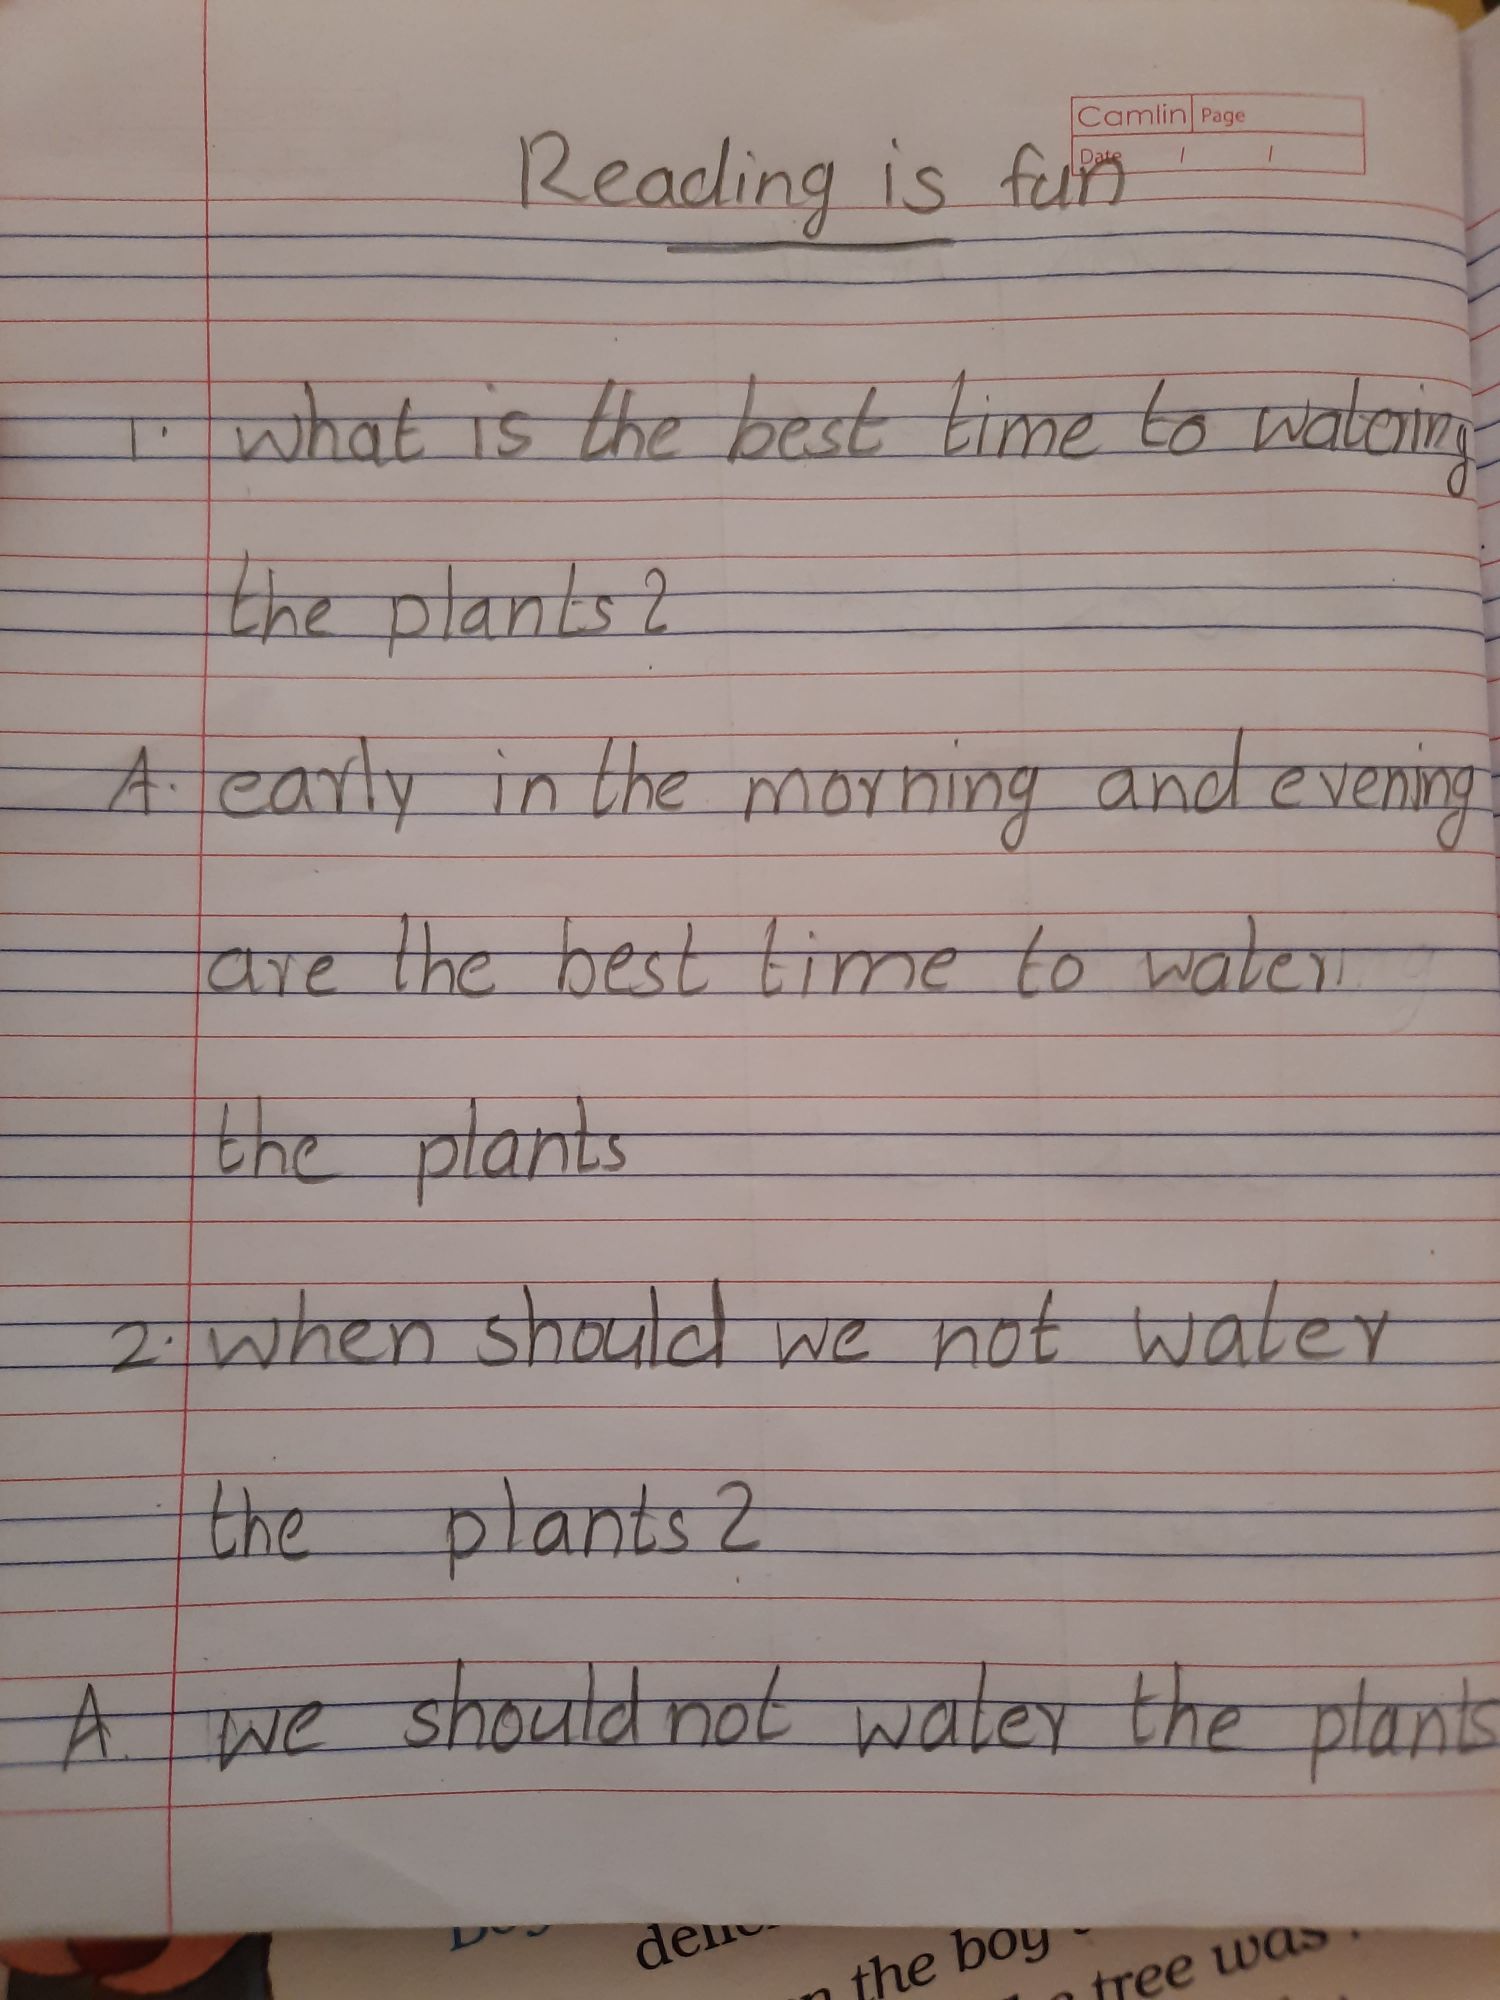 Camlin Page
Date / /
Reading is fun
1. what is the best time to watering
the plants?
A. early in the morning and evening
are the best time to water
the plants
2. when should we not water
the plants?
A. we should not water the plants
the boy
tree was